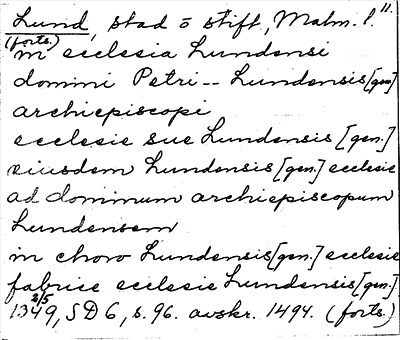 Lund, stad o stift, Malm. l. 11.
(forts.)
in ecclesia Lundensi
domini Petri -- Lundensis [gen]
archiepiscopi
ecclesie sue Lundensis [gen.]
eiusdem Lundensis [gen.] ecclesie
ad dominum archiepiscopum
Lundensem
in choro Lundensis [gen.] ecclesie
fabrice ecclesie Lundensis [gen.]
1349, 2/5 SD 6, s. 96. avskr. 1494. (forts.)